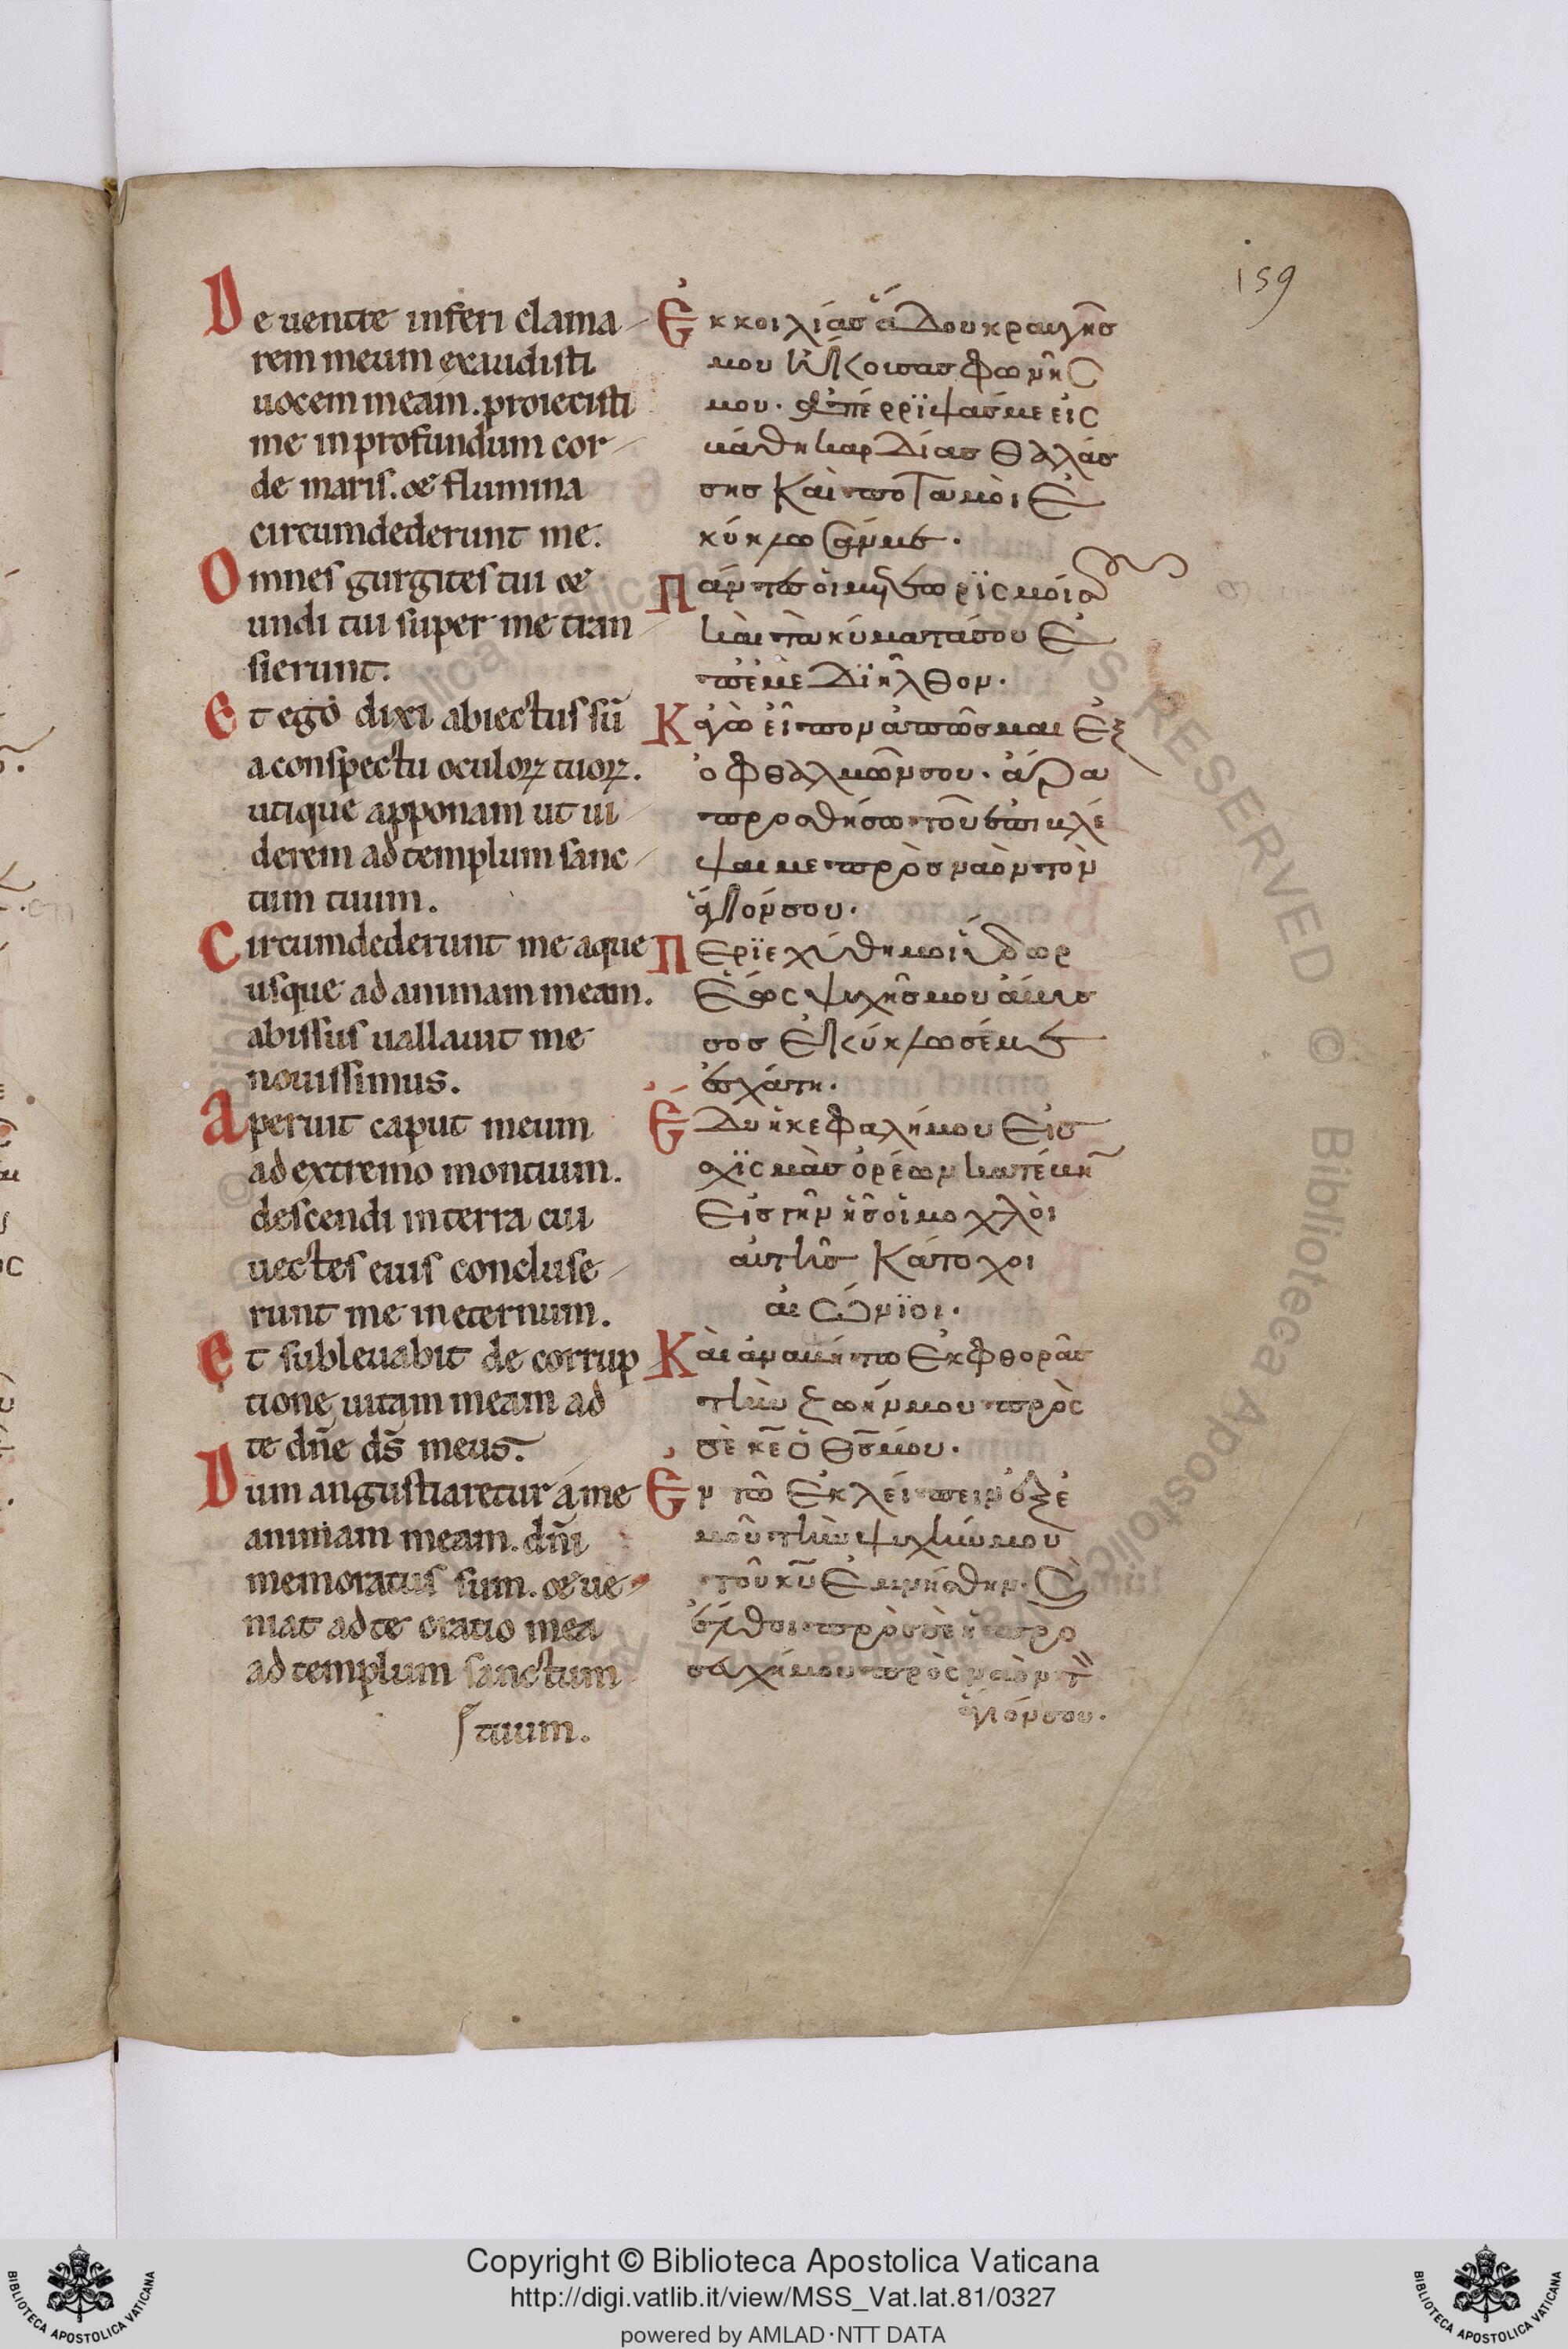 159
De uentre inferi clama
rem meum exaudisti
uocem meam. proiecisti
me in profundum cor
de maris. & flumina
circumdederunt me.
Omnes gurgites tui &
undi tui super me tran
sierunt.
Et ego dixi abiectus sū
a conspectu oculoꝝ tuoꝝ.
utique apponam ut ui
derem ad templum sanc
tum tuum.
Circumdederunt me aque
usque ad animam meam.
abissus uallauit me
nouissimus.
Aperuit caput meum
ad extremo montium.
descendi in terra cui
uectes eius concluse
runt me in eternum.
Et subleuabit de corrup
tione uitam meam ad
te dn̄e ds̄ meus.
Dum angustiaretur a me
animam meam. dn̄i
memoratus sum. & ue
niat ad te oratio mea
ad templum sanctum
tuum.
Ἐκ κοιλίασ ἅδου κραυγῆσ
μου ἤκουσασ φωνῆς
μου. ἀπέρριψάσ με εἰς
βάθη καρδίασ θαλάσ
σησ καὶ ποταμοὶ ἐ
κύκλωσάν με.
Πάντες οἱ μετεωρισμοί σου
καὶ τὰ κύματά σου ἐ
π' ἐμὲ διῆλθον.
Κἀγὼ εἶπον ἀπῶσμαι ἐξ
ὀφθαλμῶν σου. ἆρα
προσθήσω τοῦ ἐπιβλέ
ψαι με πρὸσ ναὸν τὸν
ἅγιόν σου.
Περιεχύθη μοι ὕδωρ
ἕως ψυχῆσ μου ἄβυσ
σοσ ἐκύκλωσέ με
ἐσχάτη.
Ἔδυ ἡ κεφαλή μου εἰσ
σχισμὰσ ὀρέων κατέβην
εἰσ γῆν ἧσ οἱ μοχλοὶ
αὐτῆσ κάτοχοι
αἰώνιοι.
Καὶ ἀναβήτω ἐκ φθορᾶσ
τὴν ζωήν μου πρὸς
σὲ κε̄ ὁ θσ̄ μου.
Ἐν τῶ ἐκλείπειν ἐξ ἐ
μοῦ τὴν ψυχήν μου
τοῦ κῡ ἐμνήσθην. καὶ
ἔλθοι πρὸσ σὲ ἡ προ
σευχή μου πρὸς ναὸν τὸν
ἅγιόν σου.
Copyright © Biblioteca Apostolica Vaticana
http://digi.vatlib.it/view/MSS_Vat.lat.81/0327
powered by AMLAD·NTT DATA
BIBLIOTECA APOSTOLICA VATICANA
BIBLIOTECA APOSTOLICA VATICANA